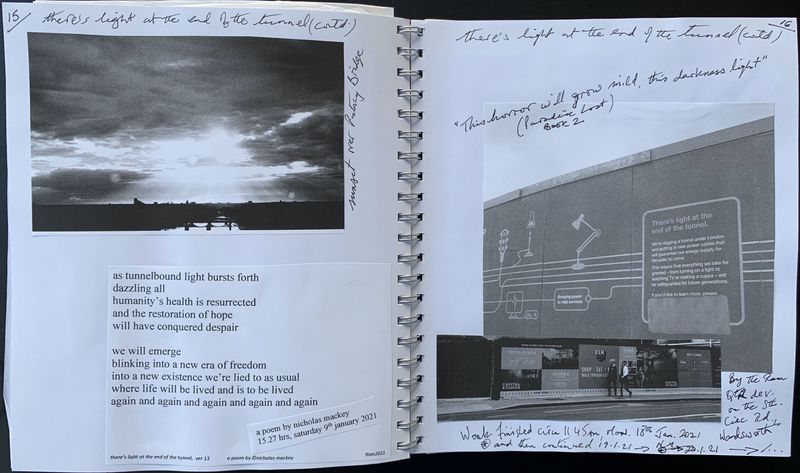 15
there's light at the end of the tunnel (contd)
sunset over Putney Bridge
as tunnelbound light bursts forth
dazzling all
humanity's health is resurrected
and the restoration of hope
will have conquered despair
we will emerge
blinking into a new era of freedom
into a new existence we're lied to as usual
where life will be lived and is to be lived
again and again and again and again and again
a poem by nicholas mackey
15.27 hrs, saturday 9th january 2021
there's light at the end of the tunnel, ver 13
a poem by ©nicholas mackey
9Jan2021
16
there's light at the end of the tunnel (contd)
"This horror will grow mild, this darkness light"
(Paradise Lost)
Book 2
There's light at the
end of the tunnel.
We're digging a tunnel under London
and putting in new power cables that
will guarantee our energy supply for
decades to come.
This means that everything we take for
granted – from turning on a light to
watching TV or making a cuppa – will
be safeguarded for future generations.
If you'd like to learn more, please
Bringing power
to vital services.
By the Ram
Qtr dev.
on the Sth.
Circ Rd
Wandsworth
Work finished circa 11.45am Mon. 18th Jan. 2021
and then continued 19.1.21 → 20.1.21 →